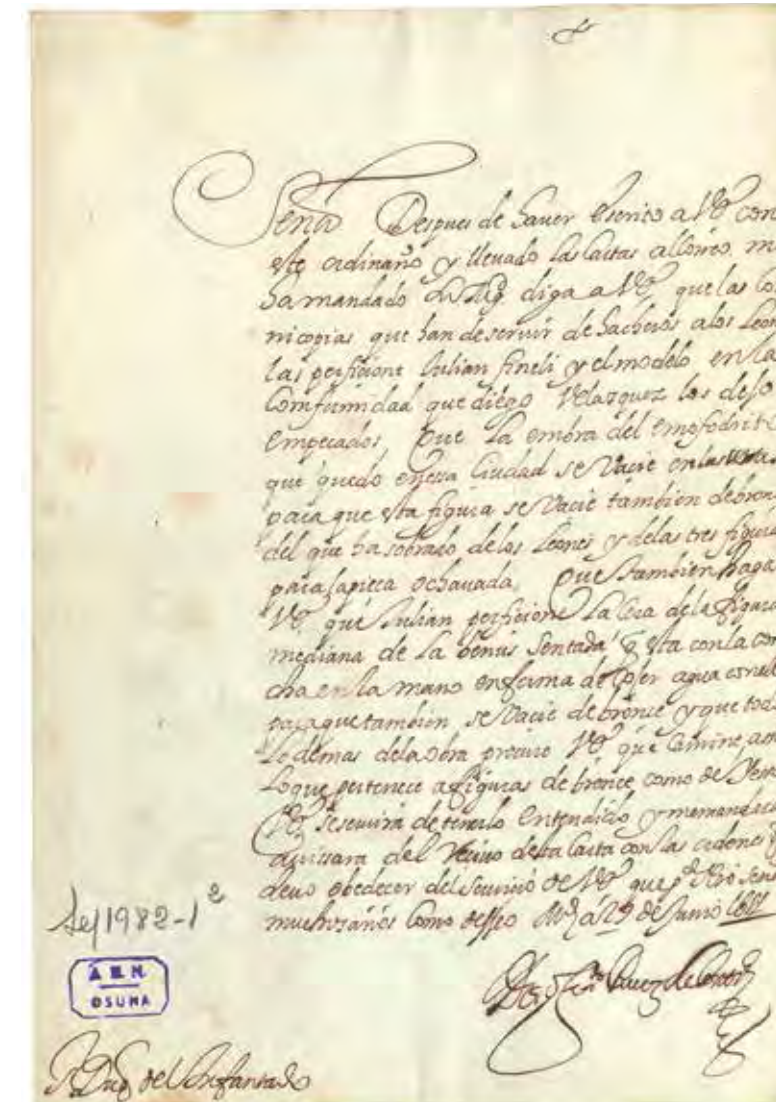 Señor Despues de hauer escrito a VE con
este ordinario y lleuado las cartas al correo, m
ha mandado su Mag. diga a VE que las Co
nicopias que han de seruir de hacheros a los Leon
las perficione Julian fineli y el modelo en la
Comformidad que diego Velazquez los dejo
empeçados, Que la embra del emofodrito
que quedo en essa Ciudad se Vacie en
para que esta figura se Vacie tambien de bron
del que ha sobrado de los Leones y de las tres figuras
para la pieça ochauada, Que tambien haga
VE que Julian perficione La Cera de la figura
mediana de La benus Sentada q esta con la con
cha en la mano en forma de cojer agua con
para que tambien se Vacie de bronce y que todo
lo demas de la obra precure VE que Camine, asi
Lo que pertenece a figuras de bronce, como de
VE se seruira de tenerlo Entendido y me mandara
auissara del Reciuo desta Carta con las ordenes q
deuo obedecer del seruicio de VE que g.e Dios
muchos años Como desseo Md a 29 de Junio 1651
Sej 1982-1 2
A.H.N.
OSUNA
S.r Duq del Infantado